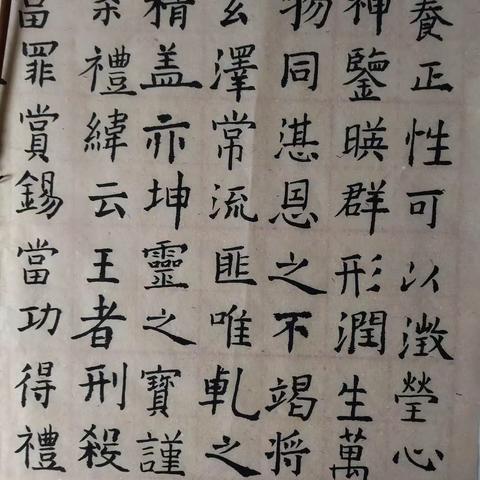 養正性可以澂瑩心
神鑒暎群形潤生萬
物同湛恩之不竭將
玄澤常流匪唯乹之
精盖亦坤靈之寶謹
案禮緯云王者刑殺
當罪賞錫當功得禮